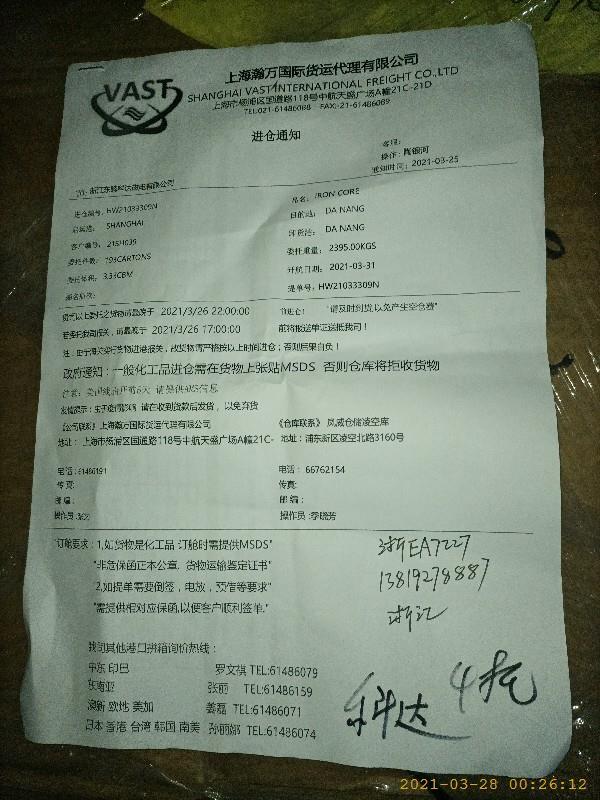 VAST
上海瀚万国际货运代理有限公司
SHANGHAI VAST INTERNATIONAL FREIGHT CO.,LTD
上海市杨浦区国通路118号中航天盛广场A幢21C-21D
TEL:021-61486088 FAX:21-61486089
进仓通知
客服:
操作: 陶银河
通知时间: 2021-03-25
进仓编号: HW21033309N
品名: IRON CORE
SHANGHAI
目的港: DA NANG
客户编号: 21SH039
卸货港: DA NANG
委托件数: 193CARTONS
委托重量: 2395.00KGS
委托体积: 3.33CBM
开航日期: 2021-03-31
提单号: HW21033309N
贵司以上委托之货物请最晚于 2021/3/26 22:00:00 前进仓! "请及时到货,以免产生空仓费"
若委托我司报关,请最晚于 2021/3/26 17:00:00 前将报送单证送抵我司!
政府通知:一般化工品进仓需在货物上张贴MSDS 否则仓库将拒收货物
请在收到货款后发货,以免弃货
《公司联系》上海瀚万国际货运代理有限公司 《仓库联系》风威仓储凌空库
地址: 上海市杨浦区国通路118号中航天盛广场A幢21C- 地址: 浦东新区凌空北路3160号
电话: 61486191 电话: 66762154
传真: 传真:
邮编: 邮编:
操作员: 操作员: 季晓芳
订舱要求: 1,如货物是化工品 订舱时需提供MSDS"
"非危保函正本公章, 货物运输鉴定证书"
"2,如提单需要倒签,电放,预借等要求"
"需提供相对应保函,以便客户顺利签单."
浙EA7227
13819278887
浙江
我司其他港口拼箱询价热线:
中东 印巴 罗文祺 TEL:61486079
东南亚 张丽 TEL:61486159
澳新 欧地 美加 姜磊 TEL:61486071
日本 香港 台湾 韩国 南美 孙丽娜 TEL:61486074
科达 4托
2021-03-28 00:26:12